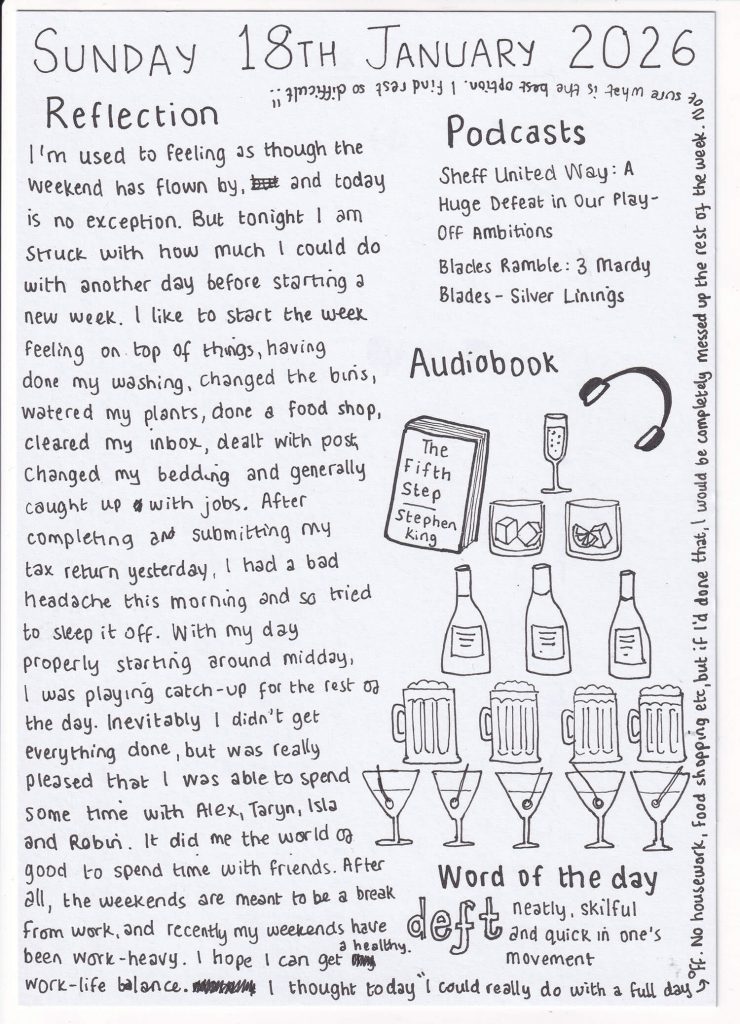 SUNDAY 18TH JANUARY 2026
Reflection
I'm used to feeling as though the
weekend has flown by, and today
is no exception. But tonight I am
struck with how much I could do
with another day before starting a
new week. I like to start the week
feeling on top of things, having
done my washing, changed the bins,
watered my plants, done a food shop,
cleared my inbox, dealt with post,
changed my bedding and generally
caught up with jobs. After
completing and submitting my
tax return yesterday, I had a bad
headache this morning and so tried
to sleep it off. With my day
properly starting around midday,
I was playing catch-up for the rest of
the day. Inevitably I didn't get
everything done, but was really
pleased that I was able to spend
some time with Alex, Taryn, Isla
and Robin. It did me the world of
good to spend time with friends. After
all, the weekends are meant to be a break
from work, and recently my weekends have
been work-heavy. I hope I can get a healthy.
work-life balance. I thought today "I could really do with a full day
off. No housework, food shopping etc, but if I'd done that, I would be completely messed up the rest of the week. No
sure what is the best option. I find rest so difficult!!"
Podcasts
Sheff United Way: A
Huge Defeat in Our Play-
Off Ambitions
Blades Ramble: 3 Mardy
Blades - Silver Linings
Audiobook
The
Fifth
Step
Stephen
King
Word of the day
deft
neatly, skilful
and quick in one's
movement